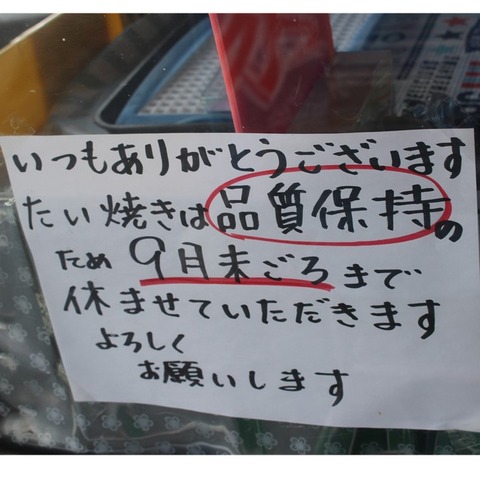 いつもありがとうございます
たい焼きは品質保持の
ため9月末ごろまで
休ませていただきます
よろしく
お願いします